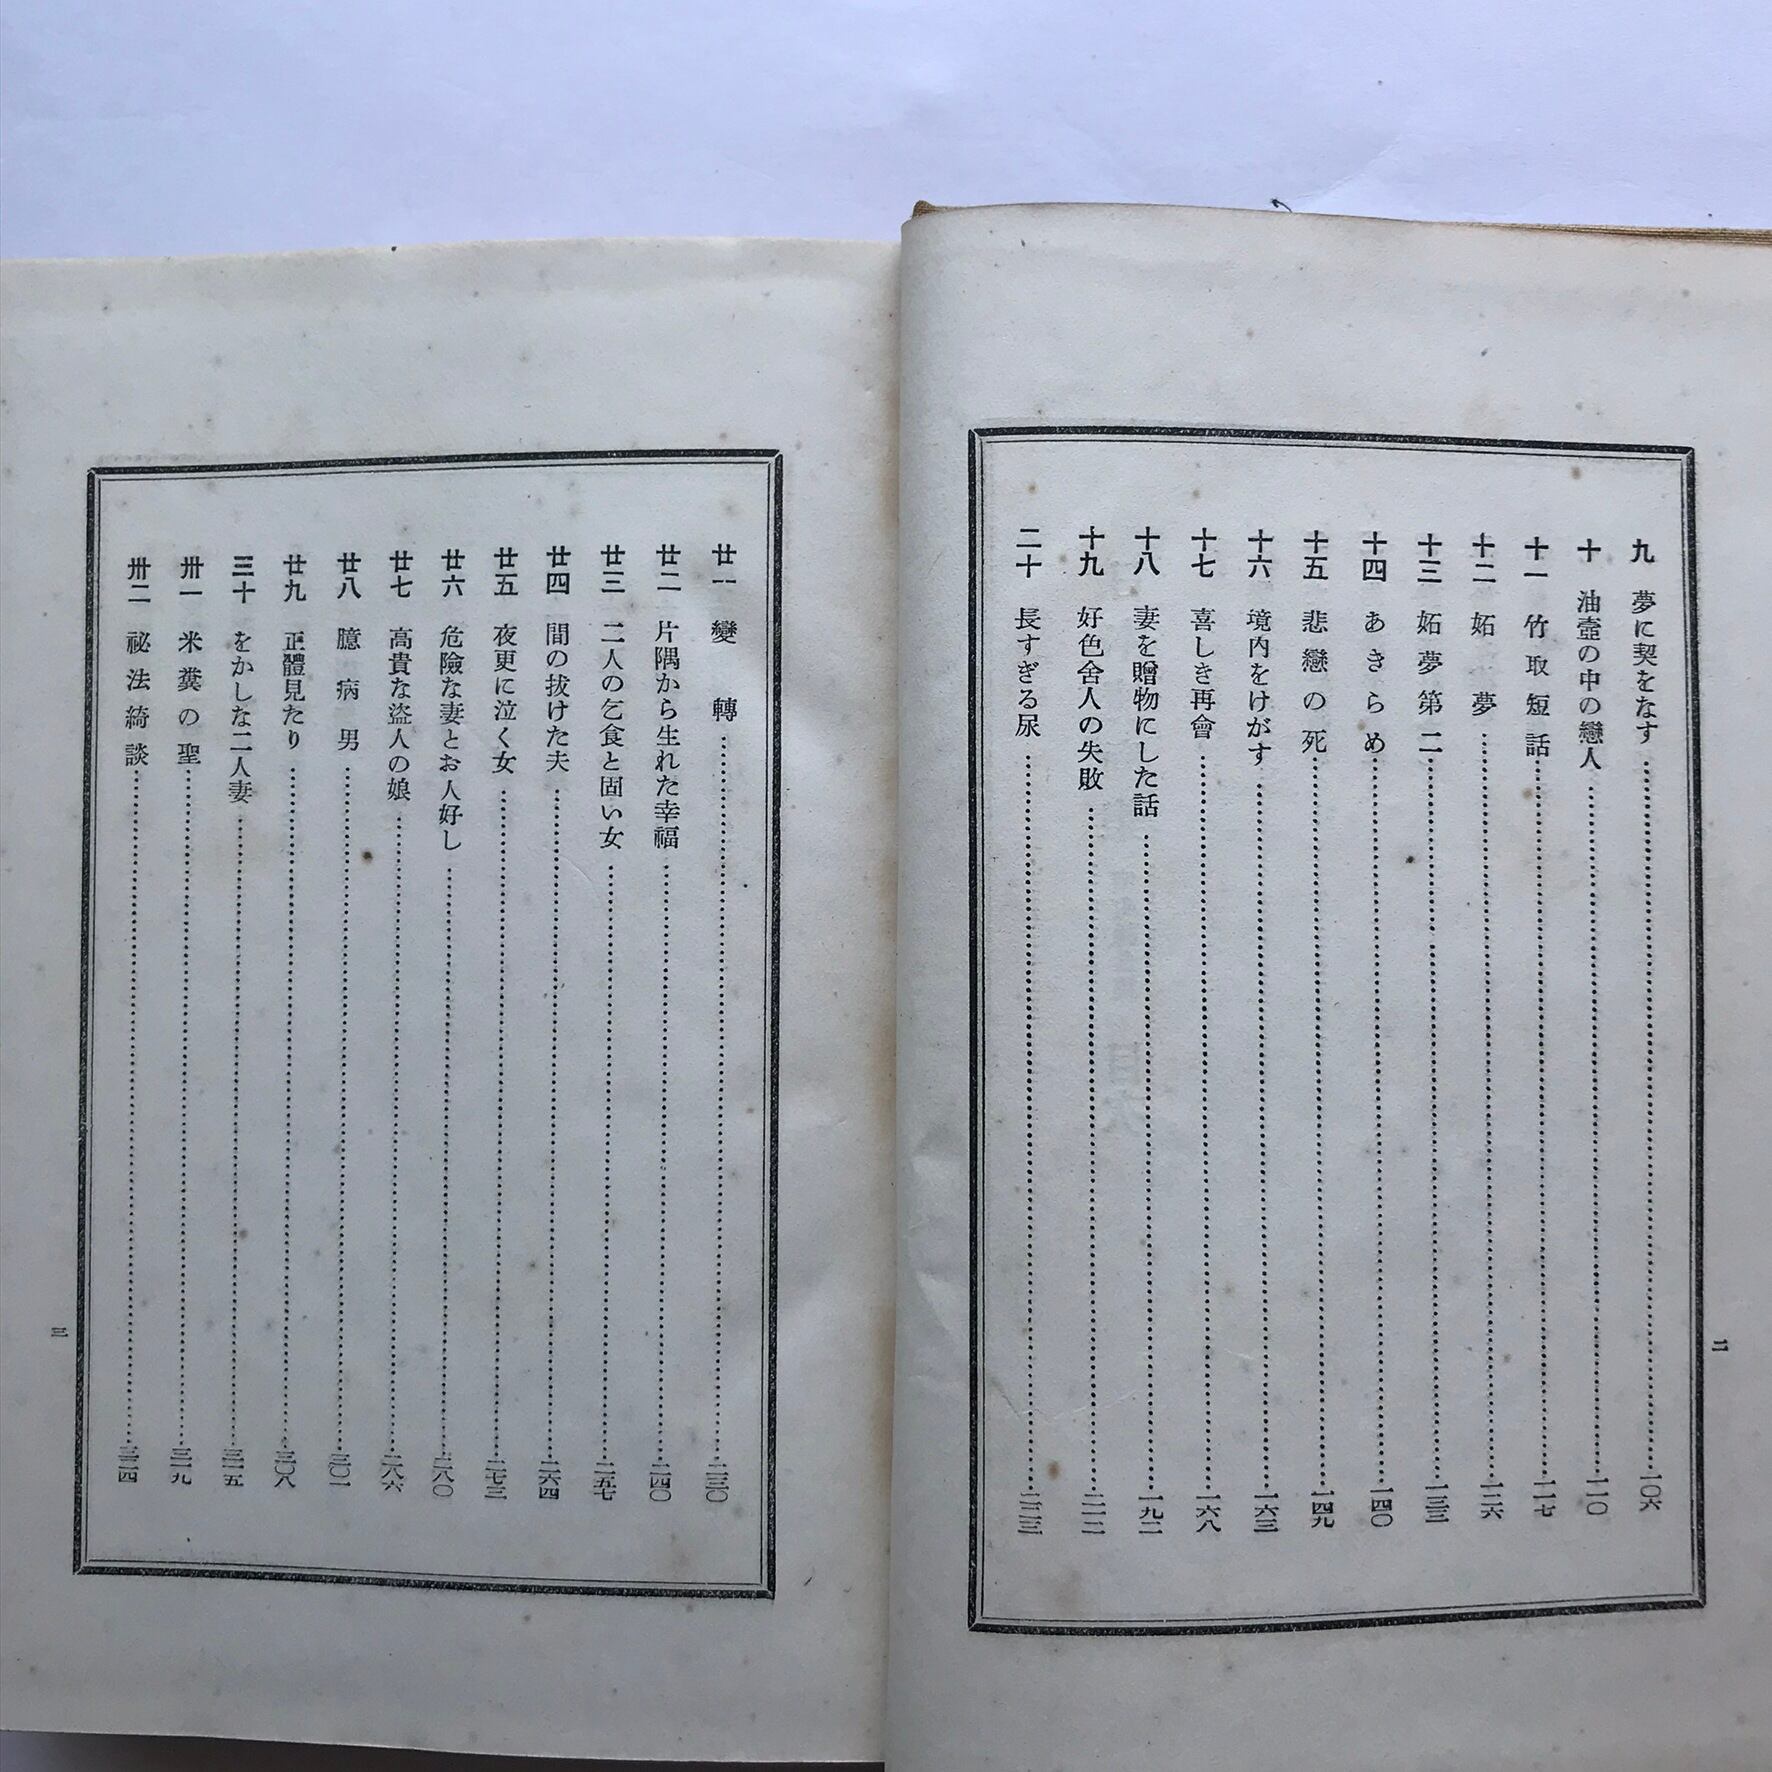 九 夢に契をなす……一〇六
十 油壺の中の戀人……一一〇
十一 竹取短話……一一七
十二 妬夢……一二六
十三 妬夢第二……一三三
十四 あきらめ……一四〇
十五 悲戀の死……一四九
十六 境内をけがす……一六三
十七 喜しき再會……一六八
十八 妻を贈物にした話……一九二
十九 好色舍人の失敗……二一二
二十 長すぎる尿……二二三
二
廿一 變轉……二三〇
廿二 片隅から生れた幸福……二四〇
廿三 二人の乞食と固い女……二五七
廿四 間の拔けた夫……二六四
廿五 夜更に泣く女……二七三
廿六 危險な妻とお人好し……二八〇
廿七 高貴な盜人の娘……二八六
廿八 臆病男……三〇一
廿九 正體見たり……三〇八
三十 をかしな二人妻……三一五
卅一 米糞の聖……三一九
卅二 祕法綺談……三二四
三